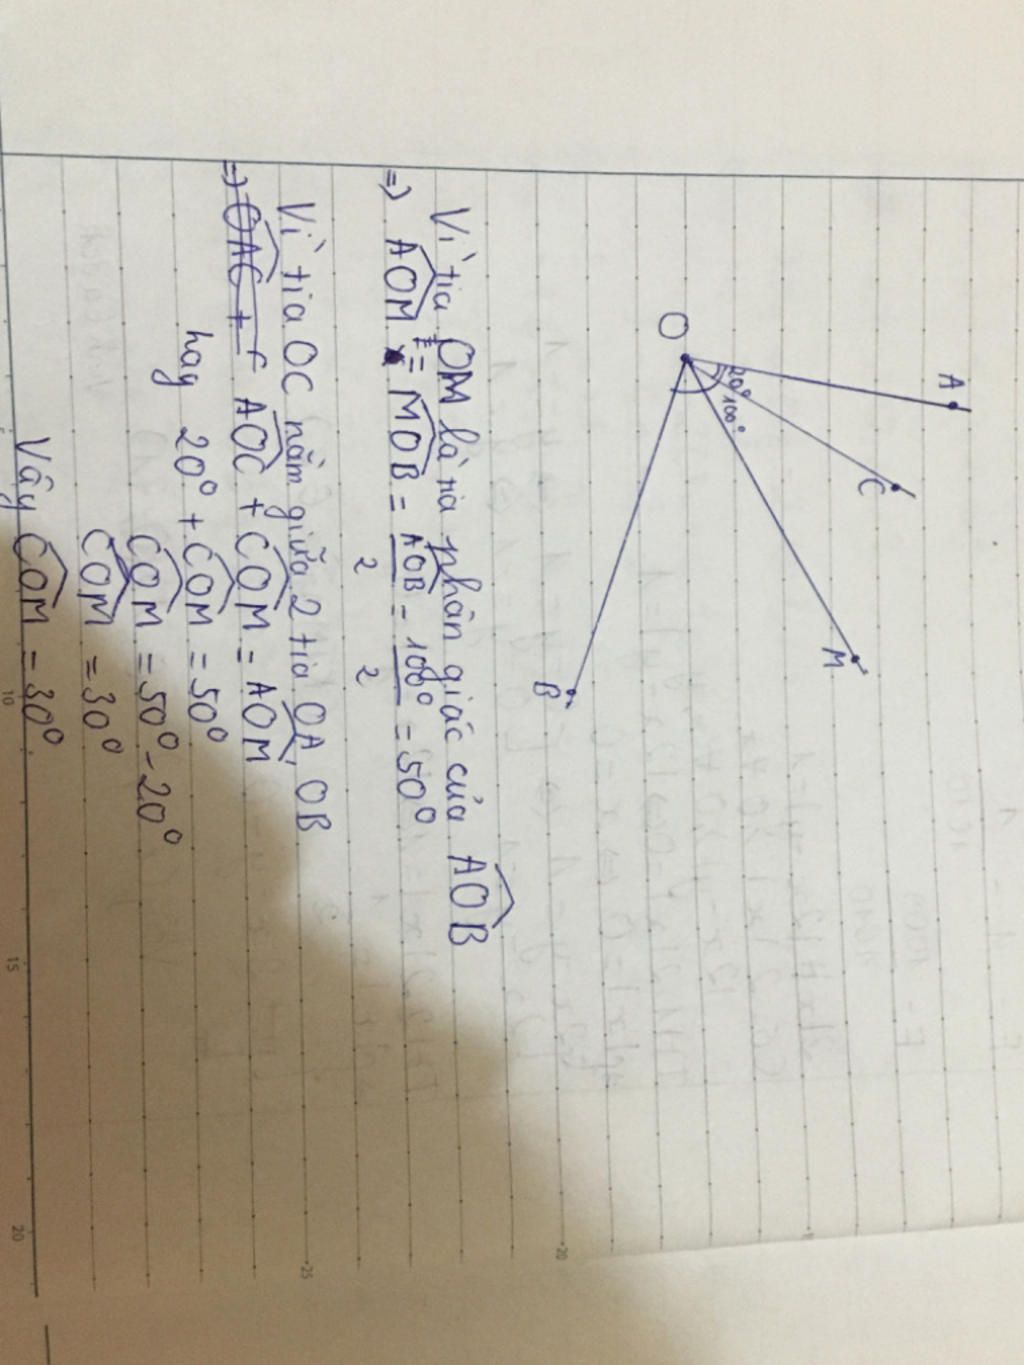 O
A
20°
100°
C
M
B
Vì tia OM là tia phân giác của AOB
=> AOM = MOB = AOB/2 = 100°/2 = 50°
Vì tia OC nằm giữa 2 tia OA, OB
=> OAC + AOC + COM = AOM
hay 20° + COM = 50°
COM = 50° - 20°
COM = 30°
Vậy COM = 30°
10
15
20
25
20